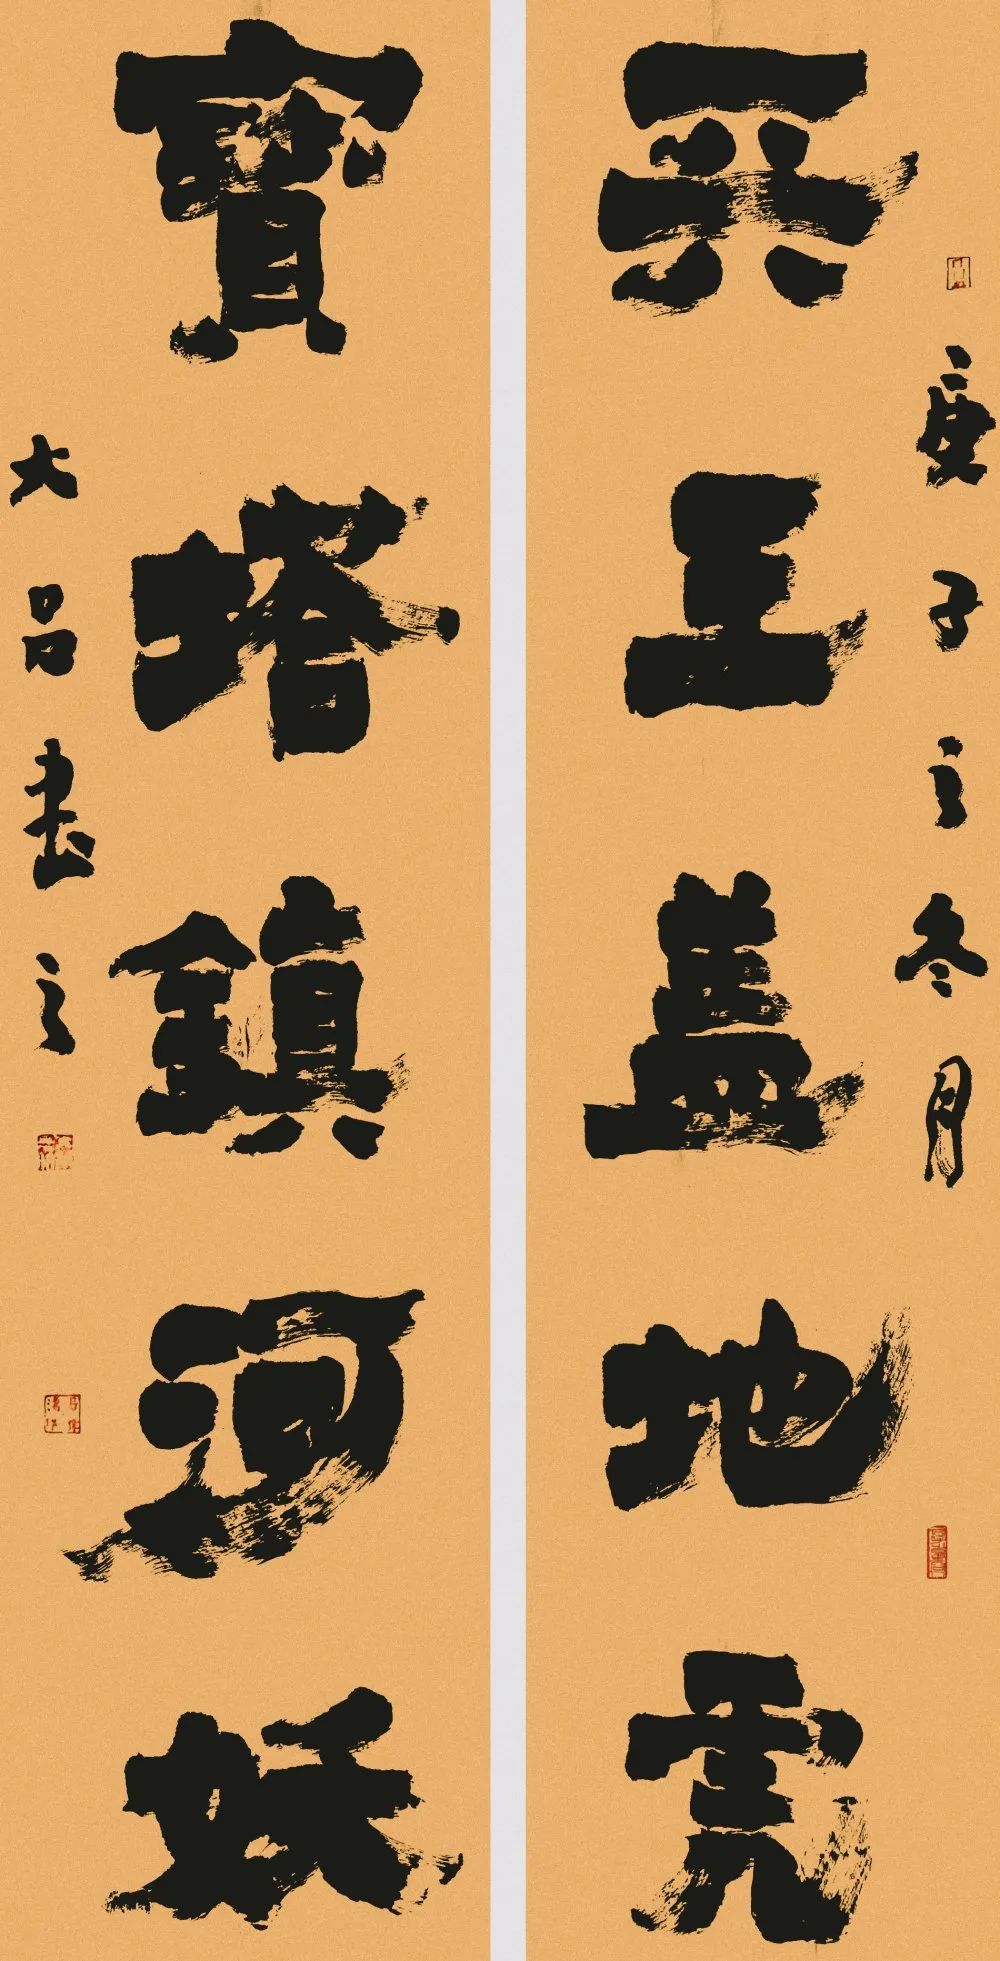 庚子之冬月
天王盖地虎
寶塔鎮河妖
大吕書之